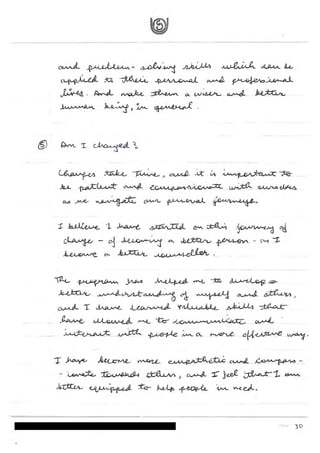 and problem-solving skills which can be
applied to their personal and professional
lives. And make them a wiser and better
human being, in general.
⑤ Am I changed?
Changes take time, and it is important to
be patient and compassionate with ourselves
as we navigate our personal journeys.
I believe I have started on this journey of
change - of becoming a better person - as I
become a better counsellor.
The program has helped me to develop a
better understanding of myself and others,
and I have learned valuable skills that
have allowed me to communicate and
interact with people in a more effective way.
I have become more empathetic and compass-
- ionate towards others, and I feel that I am
better equipped to help people in need.
30